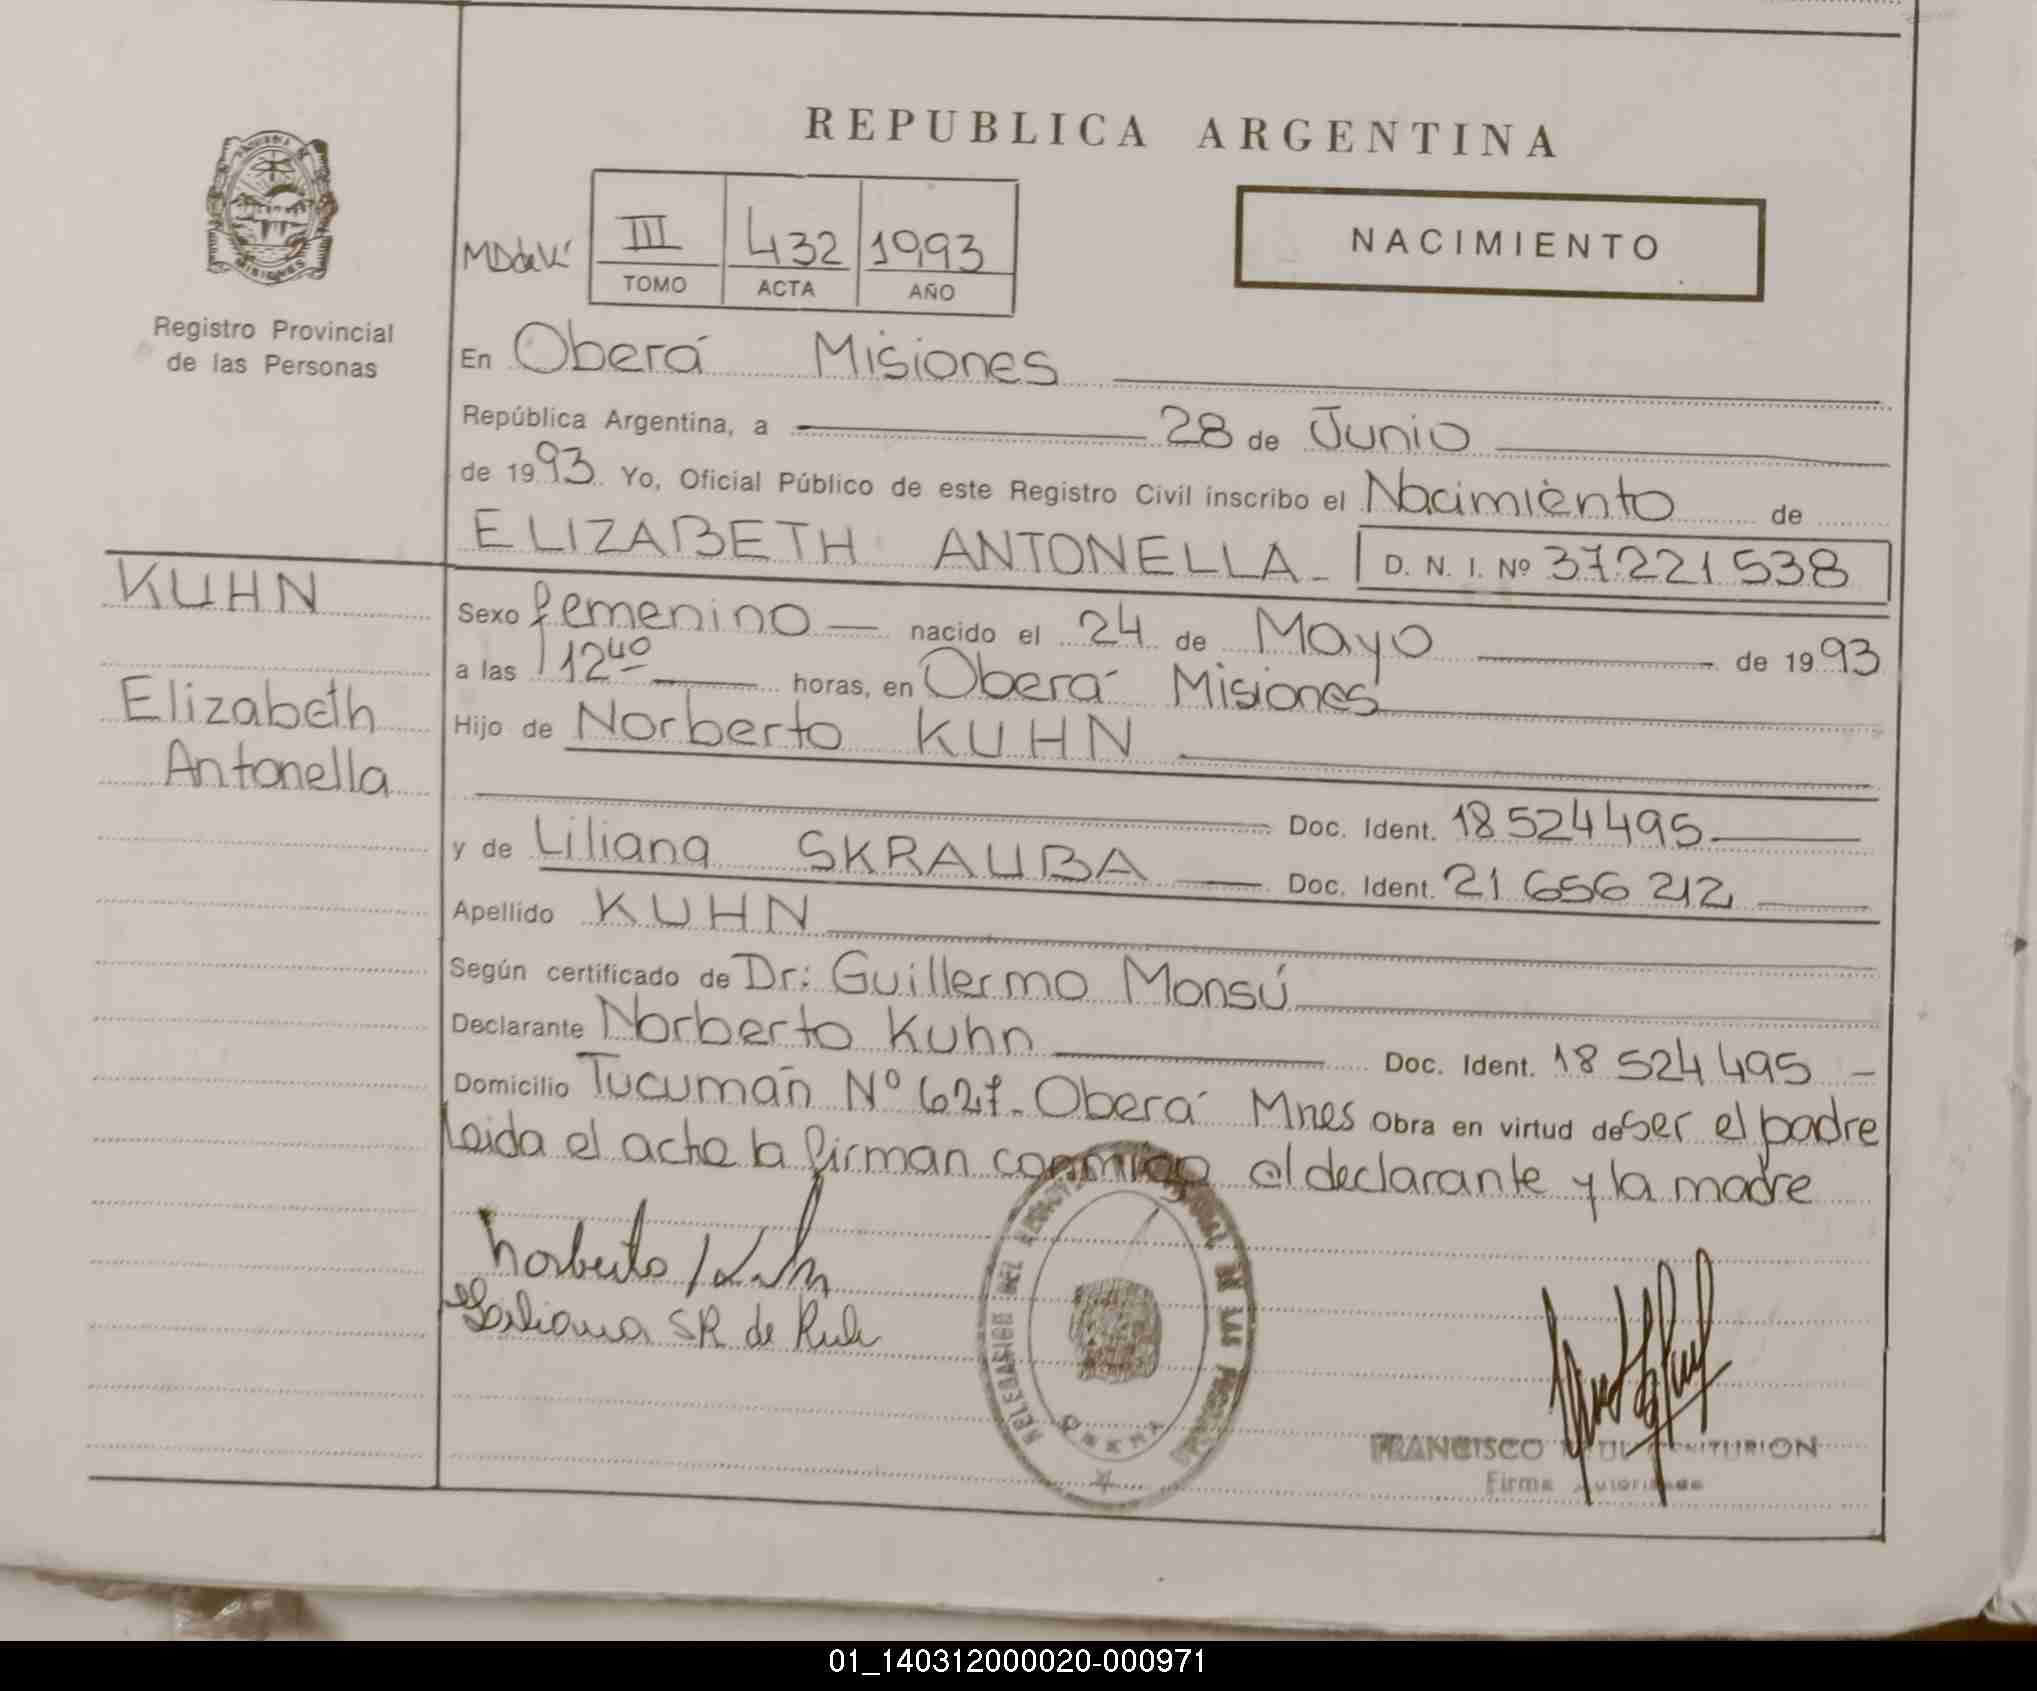 REPUBLICA ARGENTINA
PROVINCIA DE
MISIONES
Registro Provincial
de las Personas
III 432 1993
TOMO ACTA AÑO
NACIMIENTO
En Oberá Misiones
República Argentina, a 28 de Junio
de 1993 Yo, Oficial Público de este Registro Civil inscribo el Nacimiento de
ELIZABETH ANTONELLA D. N. I. Nº 37221538
KUHN
Elizabeth
Antonella
Sexo femenino nacido el 24 de Mayo de 1993
a las 12 40 horas, en Oberá Misiones
Hijo de Norberto KUHN
Doc. Ident. 18524495
y de Liliana SKRAUBA Doc. Ident. 21 656 212
Apellido KUHN
Según certificado de Dr: Guillermo Monsú
Declarante Norberto Kuhn Doc. Ident. 18 524 495
Domicilio Tucumán Nº 627 Oberá Mnes Obra en virtud de ser el padre
Leida el acta la firman conmigo el declarante y la madre
Norberto Kuhn
Liliana SK de Kuhn
DELEGACION DEL REGISTRO PROVINCIAL DE LAS PERSONAS
FRANCISCO RAUL CENTURION
Firma Autorizada
01_140312000020-000971